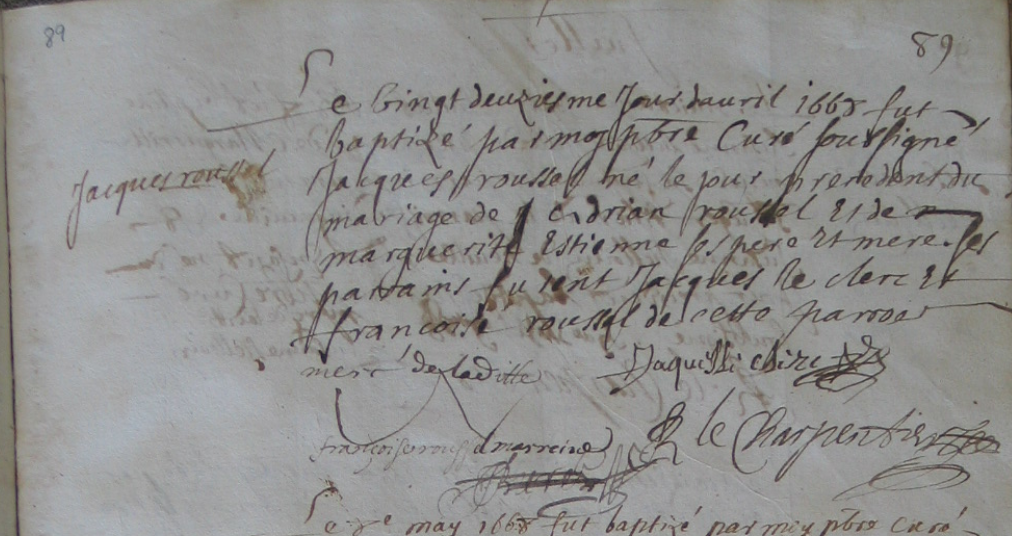 89
89
Le vingt deuxiesme Jour davril 1668 fut
baptizé par moy pbre Curé soussigné
Jacques roussel
Jacques roussel né le jour precedent du
mariage de Adrian roussel Et de
marguerite Estienne ses pere Et mere. ses
parains furent Jacques le clerc Et
françoise roussel de cette paroes
merc de laditte
Jaques
françoise roussel marreine
le Charpentier
Le 8e may 1668 fut baptizé par moy pbre Curé